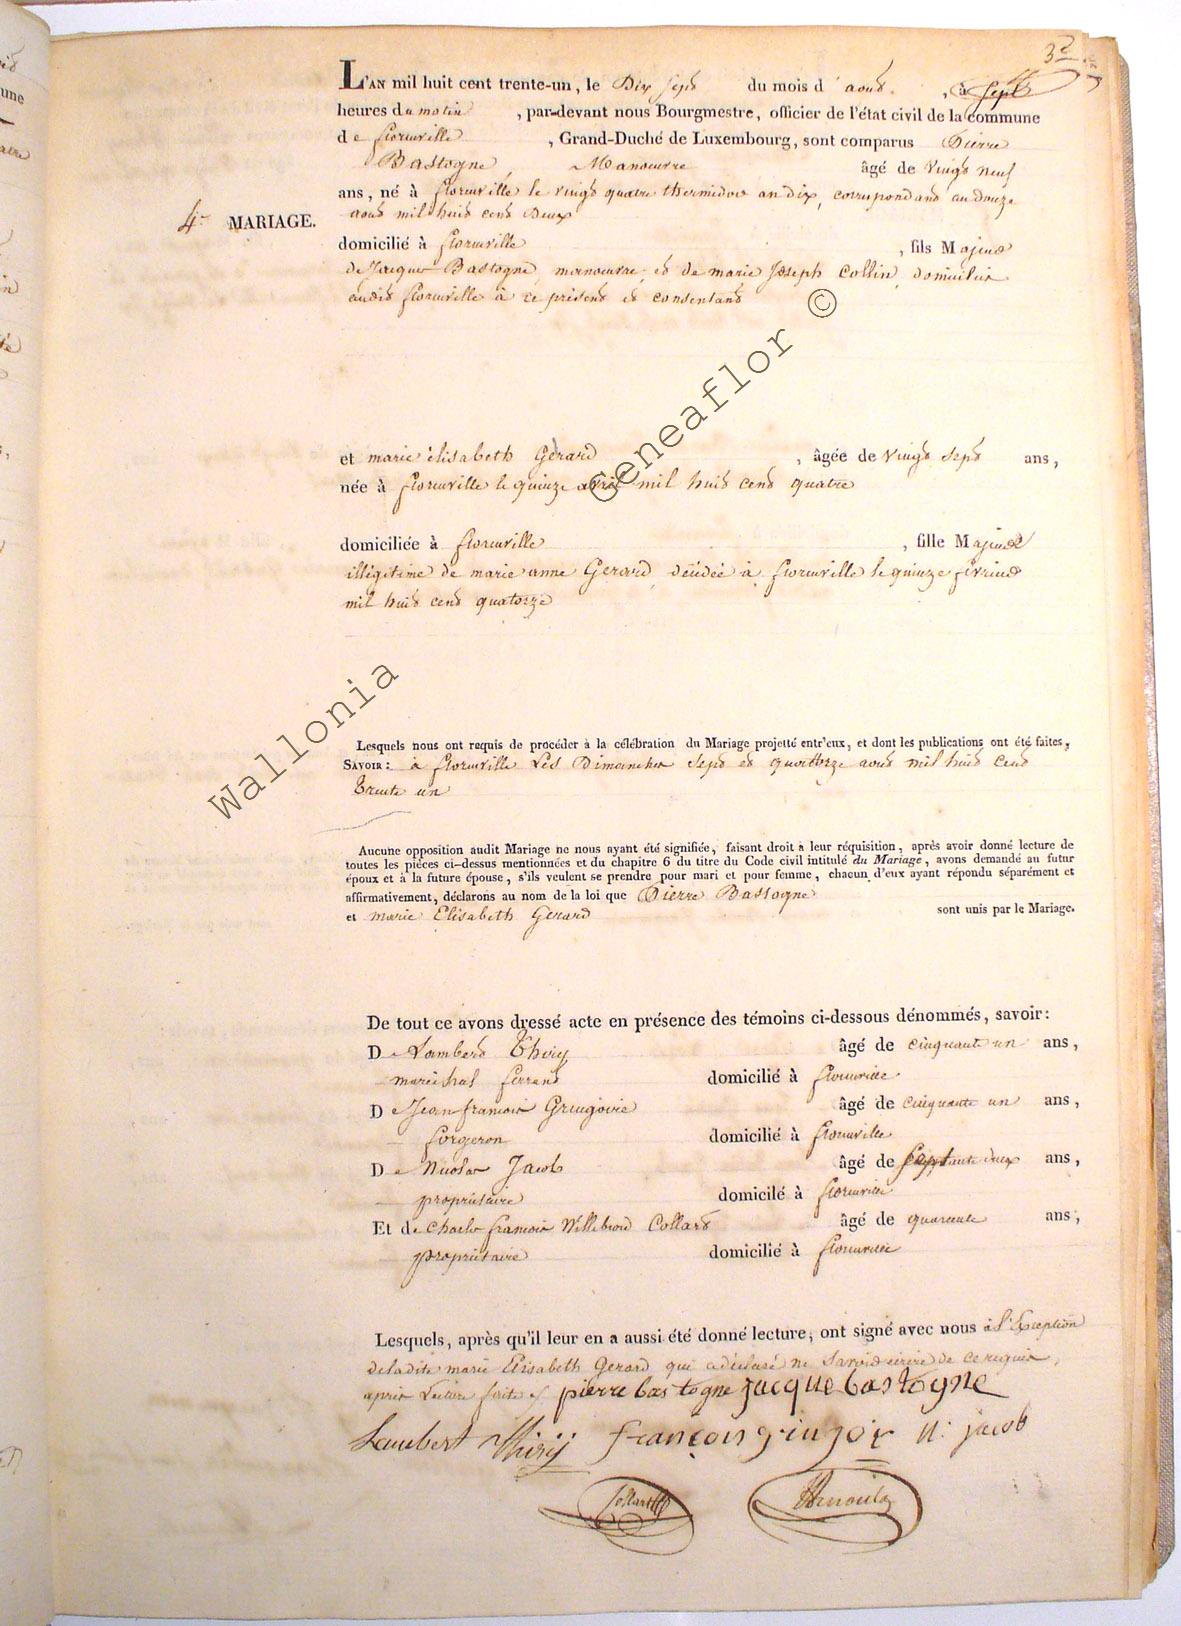 3e
L'AN mil huit cent trente-un, le Dix sept du mois d'aout, à sept
heures du matin, par-devant nous Bourgmestre, officier de l'état civil de la commune
de florenville, Grand-Duché de Luxembourg, sont comparus Pierre
Bastogne, Manoeuvre âgé de vingt neuf
ans, né à florenville le vingt quatre thermidor an dix, correspondant au douze
aout mil huit cent Deux
4e MARIAGE.
domicilié à florenville, fils Majeur
de Jacque Bastogne, manoeuvre, et de marie Joseph Collin, domiciliés
audit florenville à ce présent et consentant
et marie élisabeth Gérard, âgée de vingt sept ans,
née à florenville le quinze avril mil huit cent quatre
domiciliée à florenville, fille Majeure
illégitime de marie anne Gerard, décédée à florenville le quinze février
mil huit cent quatorze
Lesquels nous ont requis de procéder à la célébration du Mariage projetté entr'eux, et dont les publications ont été faites,
SAVOIR : à florenville Les Dimanches sept et quattorze aout mil huit cent
Trente un
Aucune opposition audit Mariage ne nous ayant été signifiée, faisant droit à leur réquisition, après avoir donné lecture de
toutes les pièces ci-dessus mentionnées et du chapitre 6 du titre du Code civil intitulé du Mariage, avons demandé au futur
époux et à la future épouse, s'ils veulent se prendre pour mari et pour femme, chacun d'eux ayant répondu séparément et
affirmativement, déclarons au nom de la loi que Pierre Bastogne
et marie Elisabeth Gerard sont unis par le Mariage.
De tout ce avons dressé acte en présence des témoins ci-dessous dénommés, savoir :
De Lambert Thiry âgé de cinquante un ans,
maréchal ferrant domicilié à florenville
De Jean francois Gringoire âgé de cinquante un ans,
forgeron domicilié à florenville
De Nicolas Jacob âgé de septante deux ans,
propriétaire domicilé à florenville
Et de Charles francois Willebrord Collard âgé de quarente ans,
propriétaire domicilié à florenville
Lesquels, après qu'il leur en a aussi été donné lecture, ont signé avec nous à l'Exception
de ladite marie Elisabeth Gerard qui a déclaré ne savoir écrire de ce requis,
après Lecture faite pierre bastogne jacque bastogne
Lambert Thiry françois gringoir N. jacob
Collard Arnould
Wallonia Geneaflor ©